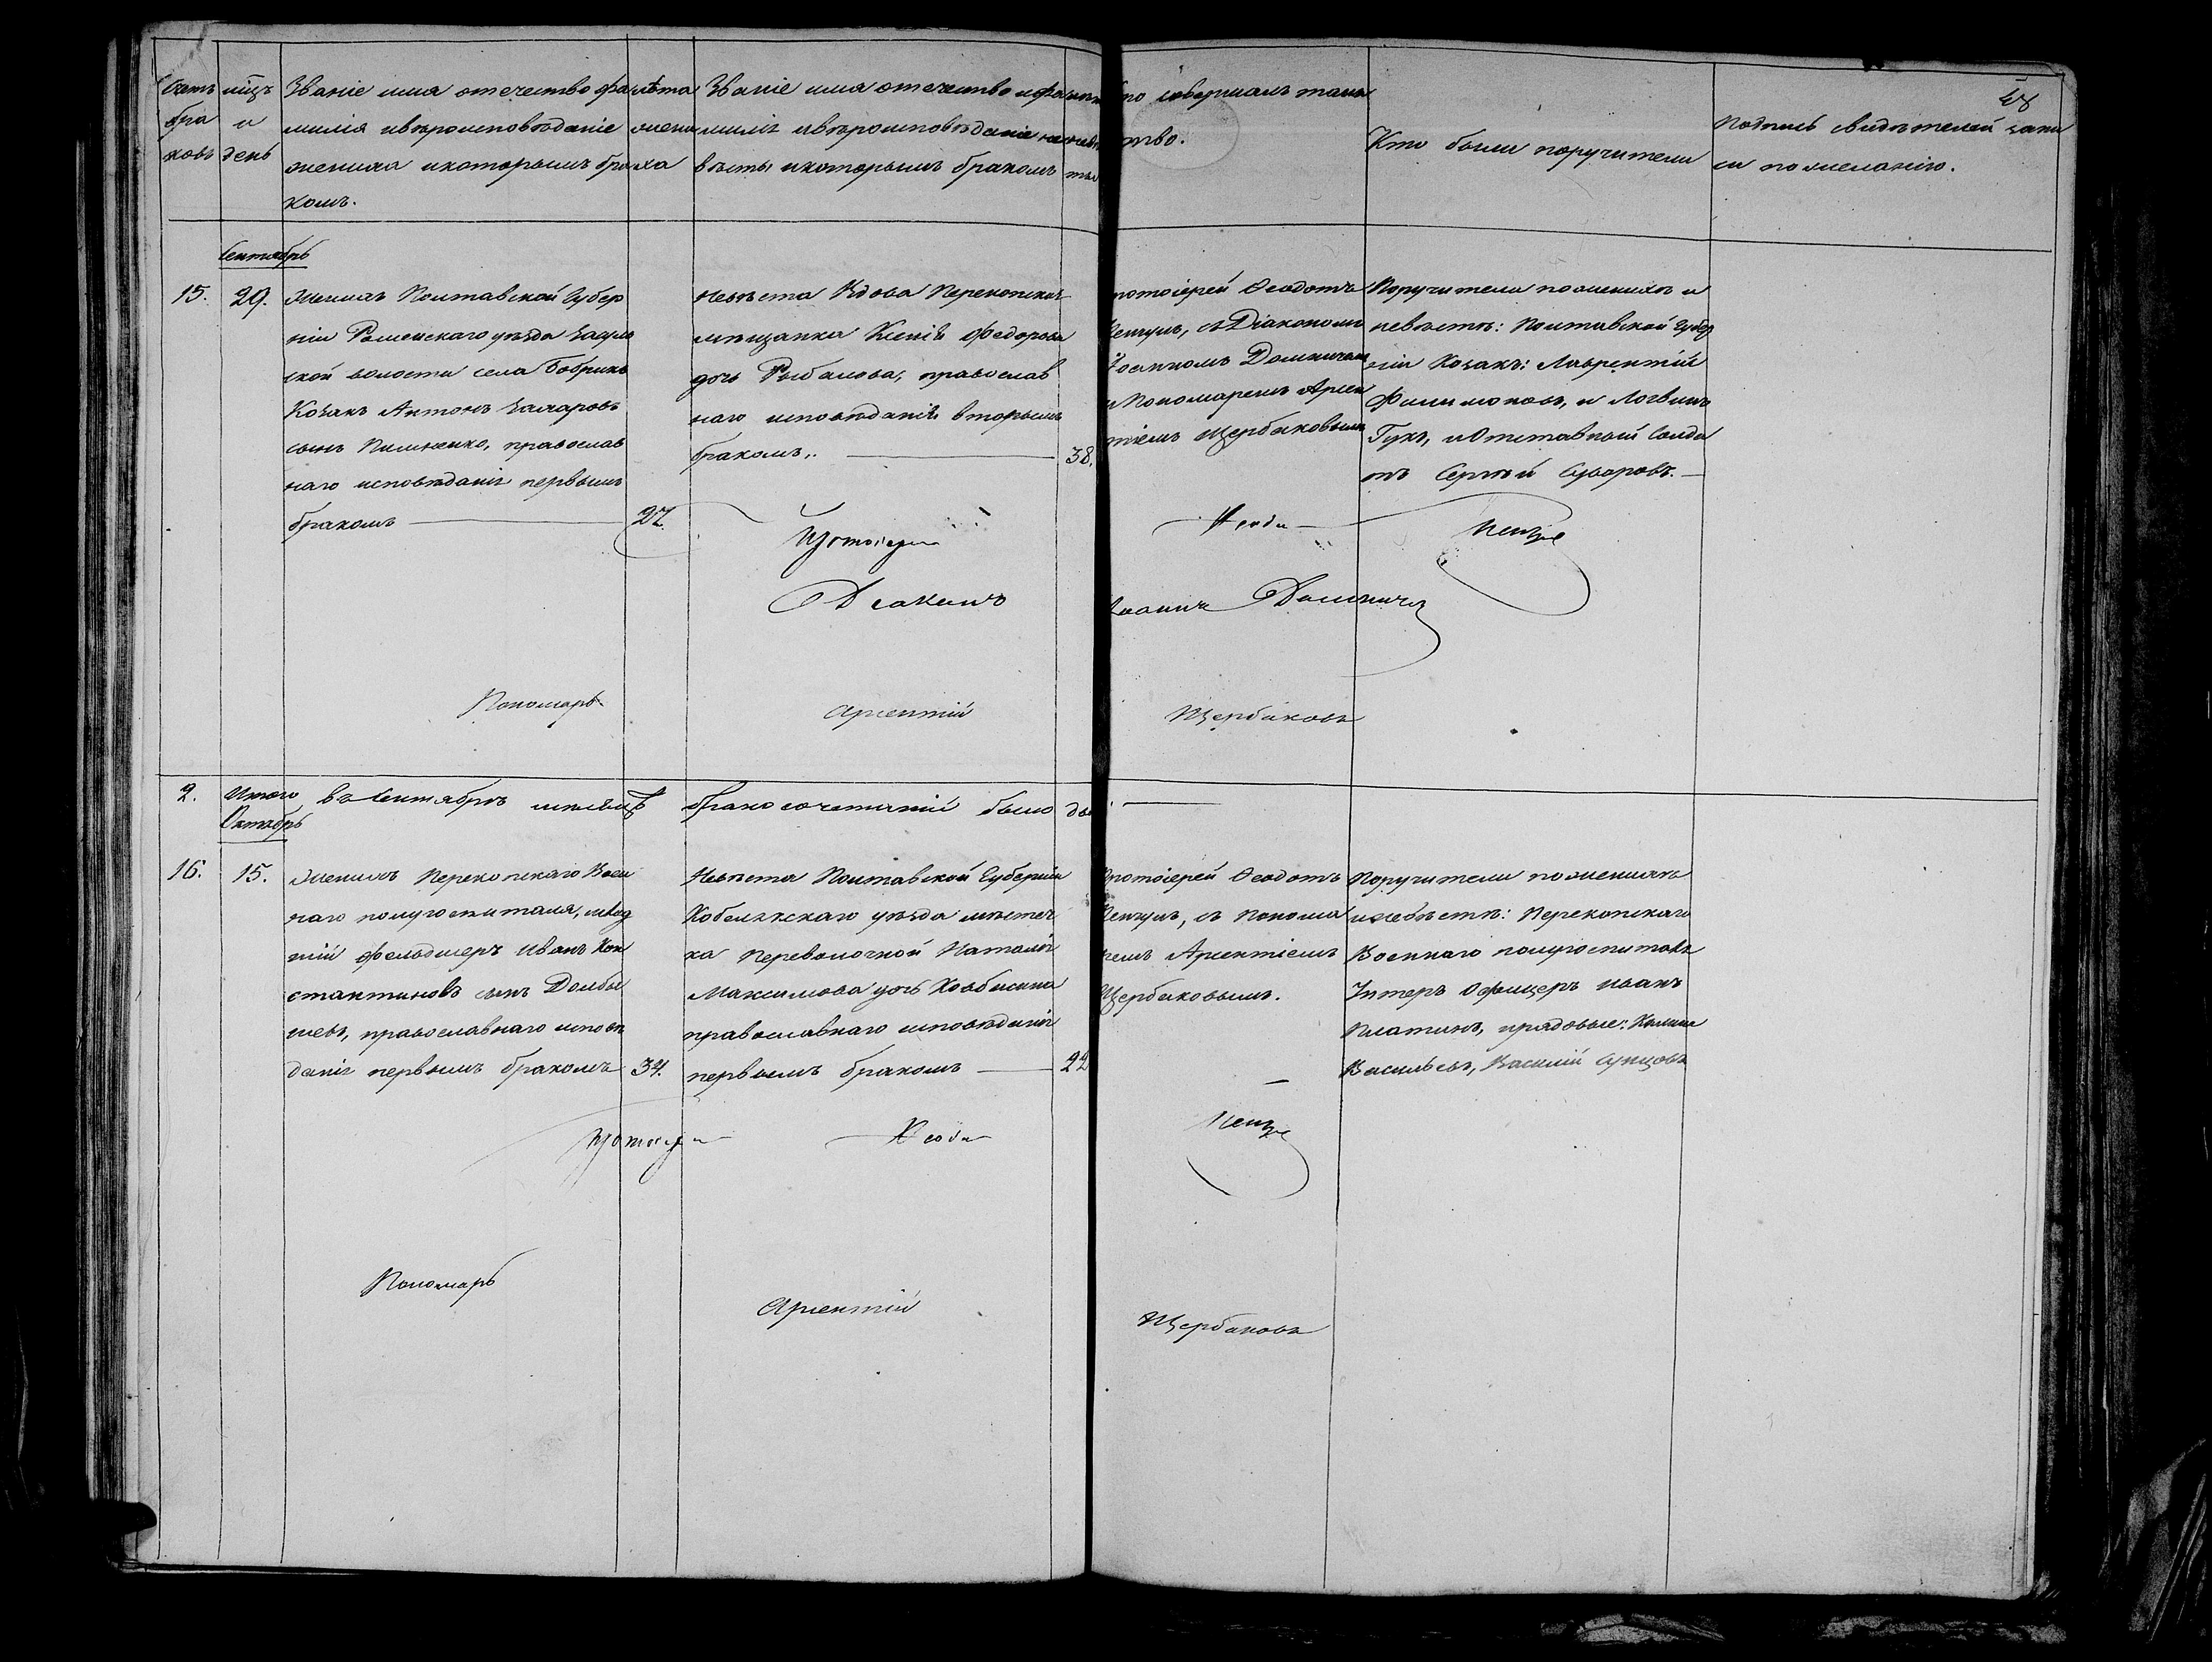 Счетъ бра ковъ
мцъ и день
Званіе имя отечество фа
милія ивѣроисповѣданіе
жениха икоторымъ бра
комъ.
лѣта
жени
ха
Званіе имя отечество ифа
милія ивѣроисповѣданіе не
вѣсты икоторымъ бракомъ
то совершалъ таин
ство.
Кто были поручители
Подпись свидѣтелей запи
си пожеланію.
Сентябрь
15.
29.
Женихъ Полтавской Губер
ніи Роменскаго уѣзда
ской волости села Бобрикъ
Козакъ Антонъ Захаровъ
сынъ Пилипенко, православ
наго исповѣданія первымъ
бракомъ
27.
Невѣста Вдова Перекопская
мѣщанка Ксенія Федорова
дочь Рыбалова, православ
наго исповѣданія вторымъ
бракомъ.
38.
ротоіерей Ѳеодотъ
съ Діакономъ
Іоанномъ
и Пономаремъ Арсен
тіемъ Щербаковымъ
Поручители поженихѣ и
невѣстѣ: Полтавской Губер
ніи Козакъ: Лаврентій
Филимоновъ, и Логвинъ
Гукъ, иОтставной Солда
тъ Сергѣй Суворовъ.
Протоіерей
Ѳеодо
Діаконъ
Іоаннъ
Пономарь
Арсентій
Щербаковъ
2.
Итого въ Сентябрѣ мѣсяцѣ бракосочетаній было два
Октябрь
16.
15.
Женихъ Перекопскаго Воен
наго полугоспиталя, млад
шій фельдшеръ Иванъ Кон
стантиновъ сынъ Домбы
шевъ, православнаго исповѣ
данія первымъ бракомъ
34.
Невѣста Полтавской Губерніи
Кобелякскаго уѣзда мѣстеч
ка Переволочной Наталія
Максимова дочь
православнаго исповѣданія
первымъ бракомъ
22
Протоіерей Ѳеодотъ
съ понома
ремъ Арсентіемъ
Щербаковымъ.
Поручители поженихѣ
иневѣстѣ: Перекопскаго
Военнаго полугоспиталя
Унтеръ Офицеръ Иванъ
Платинъ, ирядовые:
Васильевъ, Василій Сунцовъ
Протоіерей
Ѳеодо
Пономарь
Арсентій
Щербаковъ